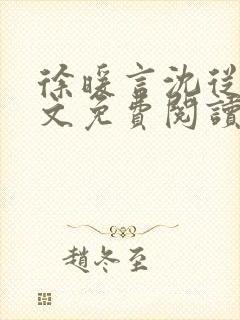 徐暖言沈從
文免費閱讀
趙冬至